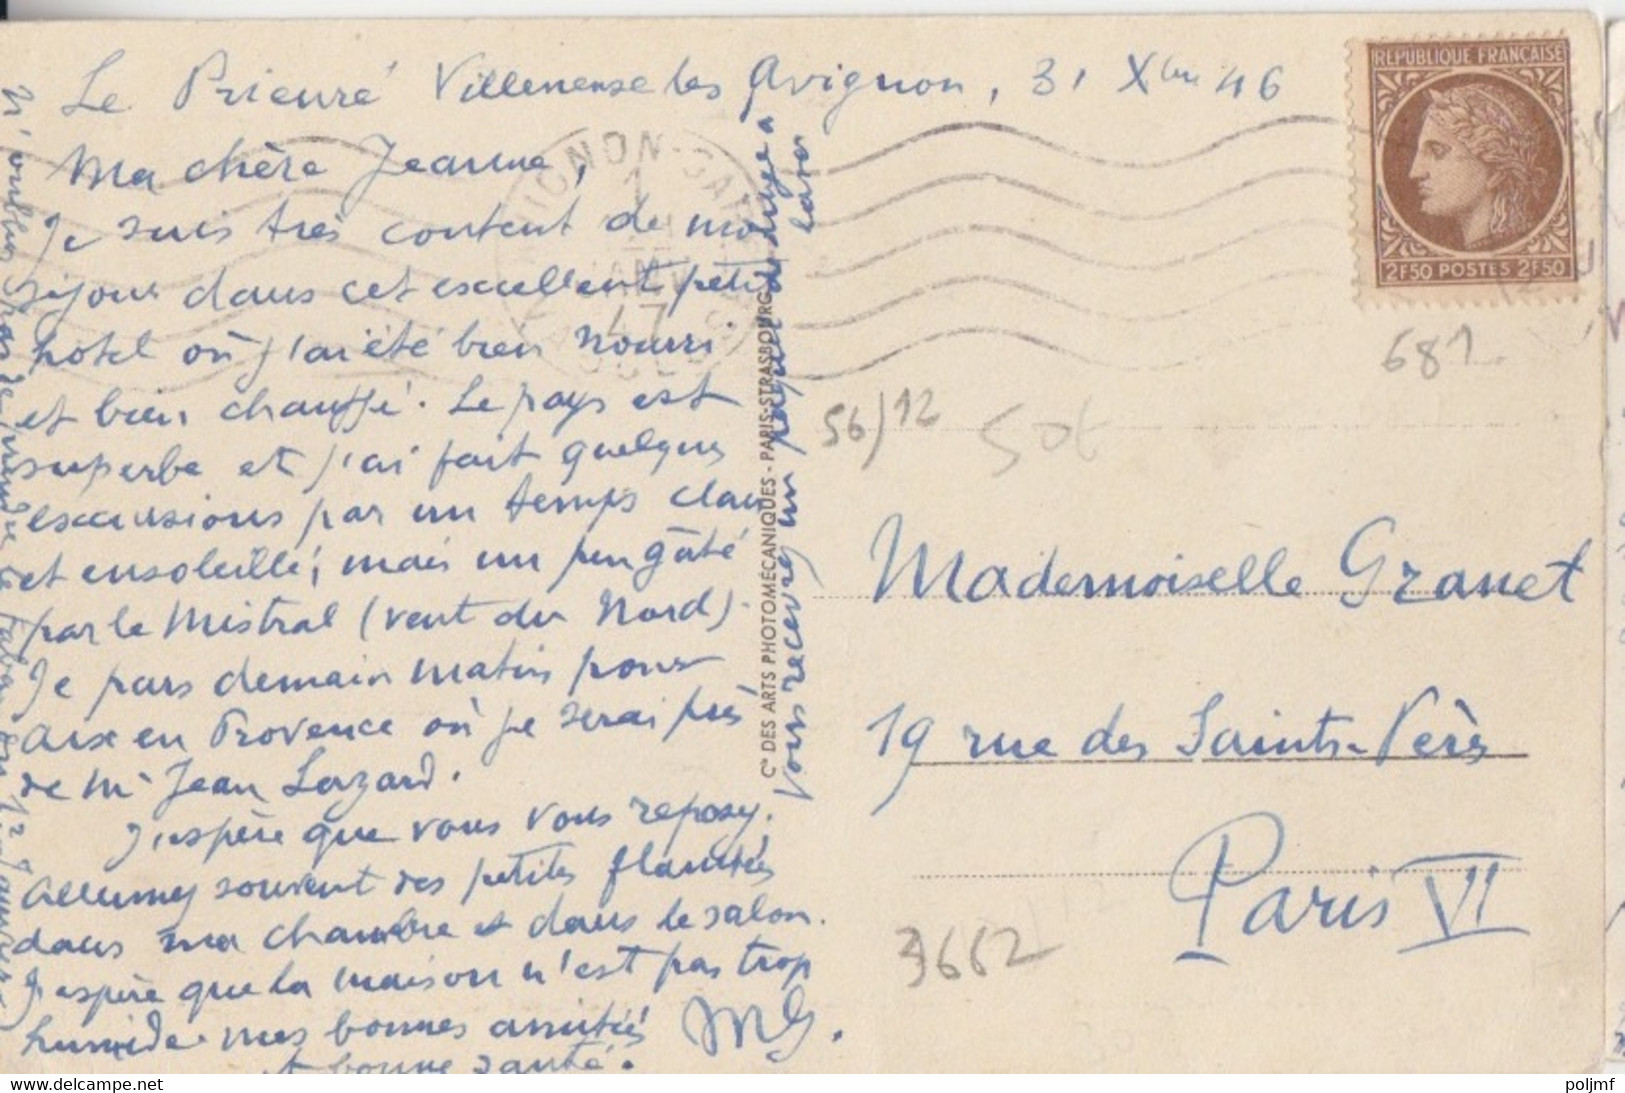 Le Prieuré Villeneuve les Avignon, 31 Xbre 46
Ma chère Jeanne,
Je suis très content de mon
séjour dans cet excellent petit
hotel où j'ai été bien nourri
et bien chauffé. Le pays est
superbe et j'ai fait quelques
excursions par un temps clair
et ensoleillé, mais un peu gâté
par le Mistral (vent du Nord).
Je pars demain matin pour
Aix en Provence où je serai près
de Mr Jean Lazard.
J'espère que vous vous reposez.
Allumez souvent des petites flambées
dans ma chambre et dans le salon.
J'espère que la maison n'est pas trop
humide. Mes bonnes amitiés
et bonne santé.
MG.
Vous recevrez un paquet de linge à
laver
N'oubliez pas de prendre le tabac
Cie DES ARTS PHOTOMÉCANIQUES - PARIS-STRASBOURG
AVIGNON-GARE
1
JANV
47
VAUCLUSE
RÉPUBLIQUE FRANÇAISE
2F50 POSTES 2F50
681
56/12
50t
Mademoiselle Granet
19 rue des Saints-Pères
Paris VI
3662
www.delcampe.net
poljmf